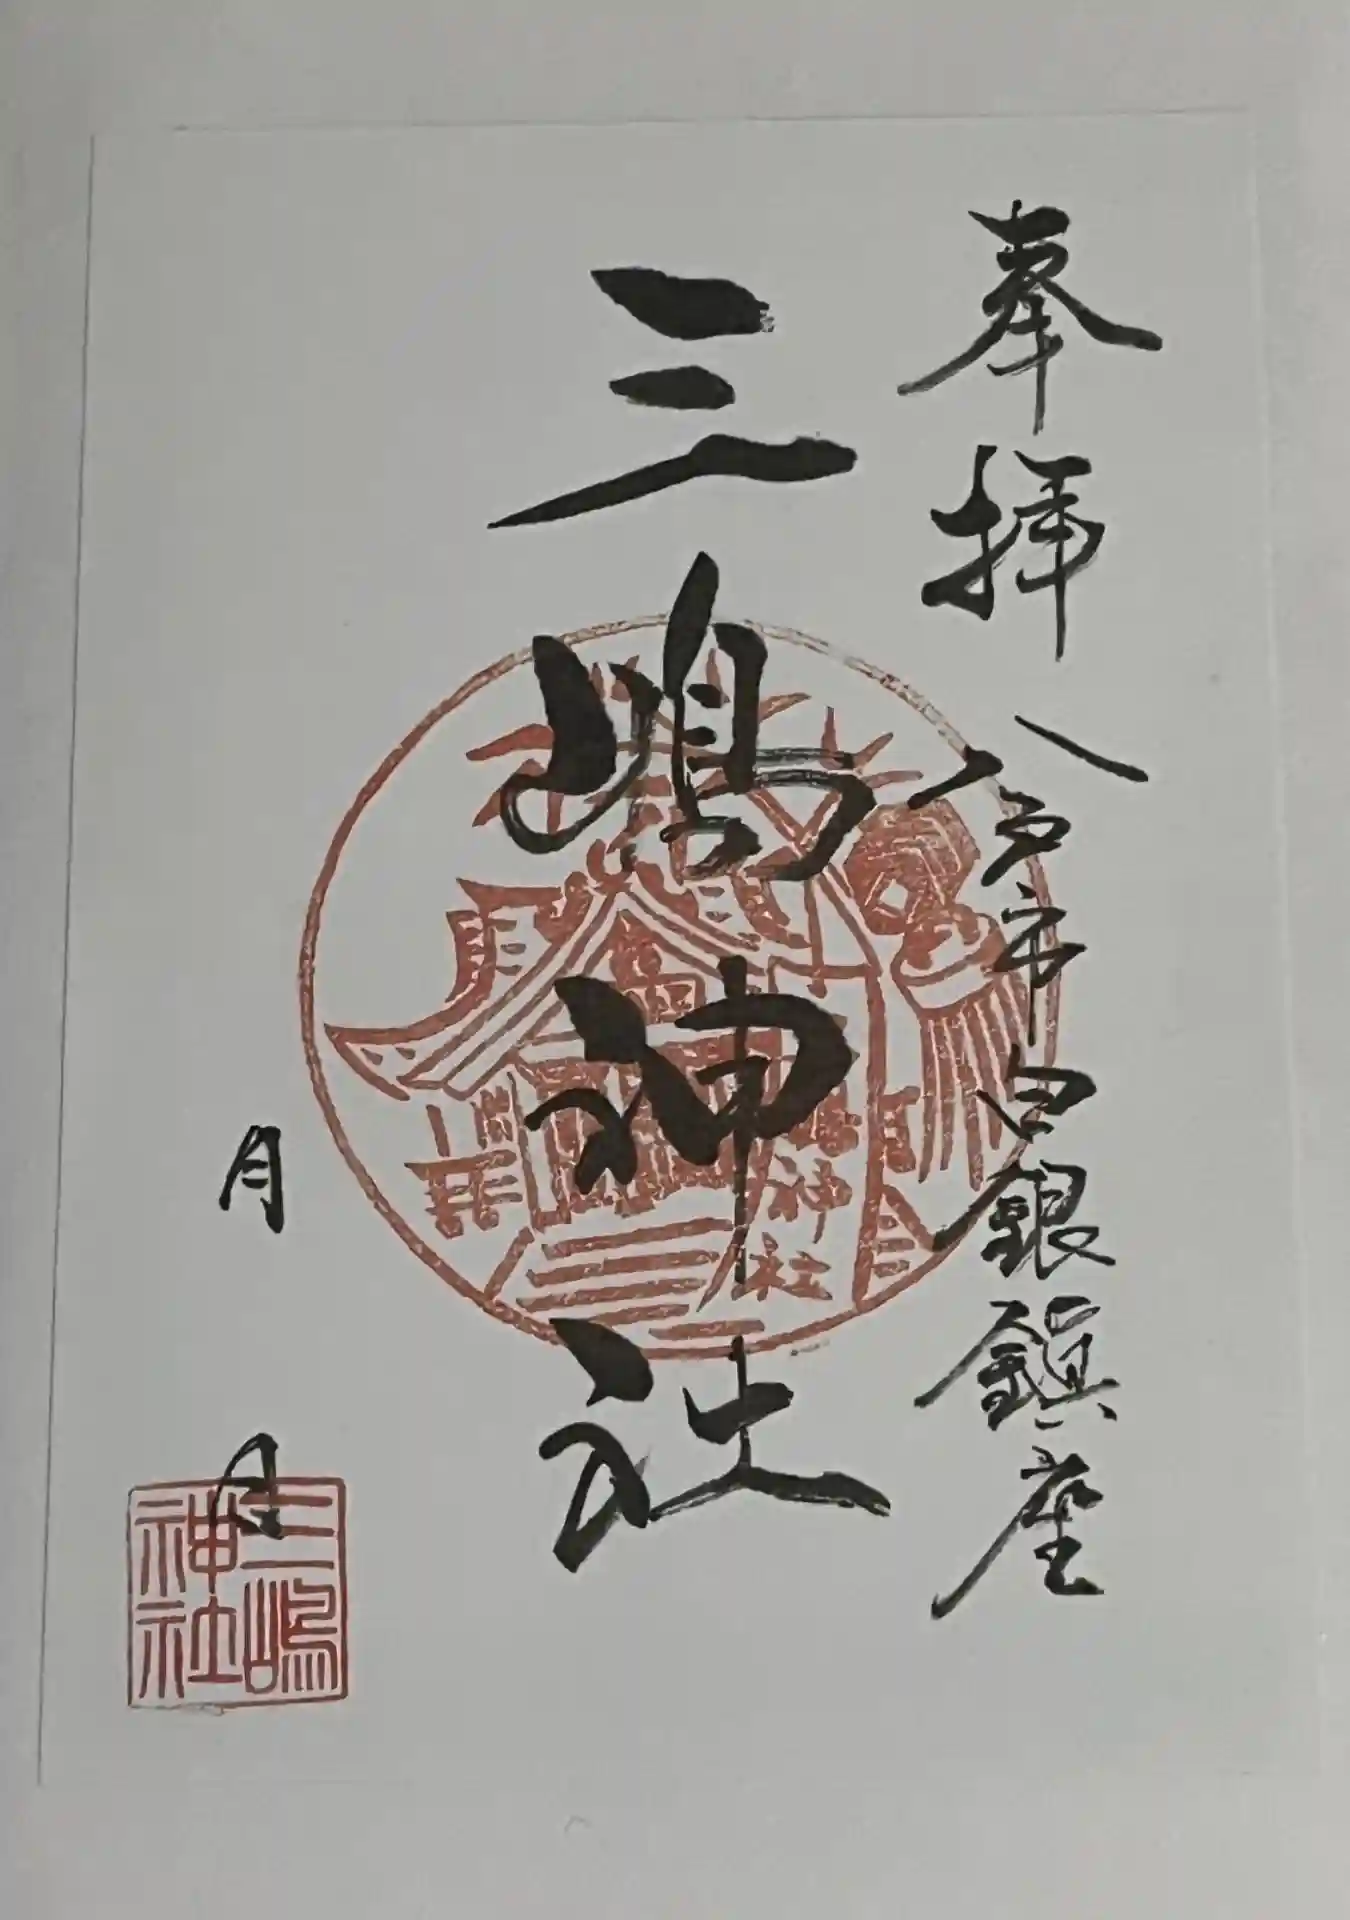 奉拝 八戸市白銀鎮座
三嶋神社
月 日
神社
三嶋神社